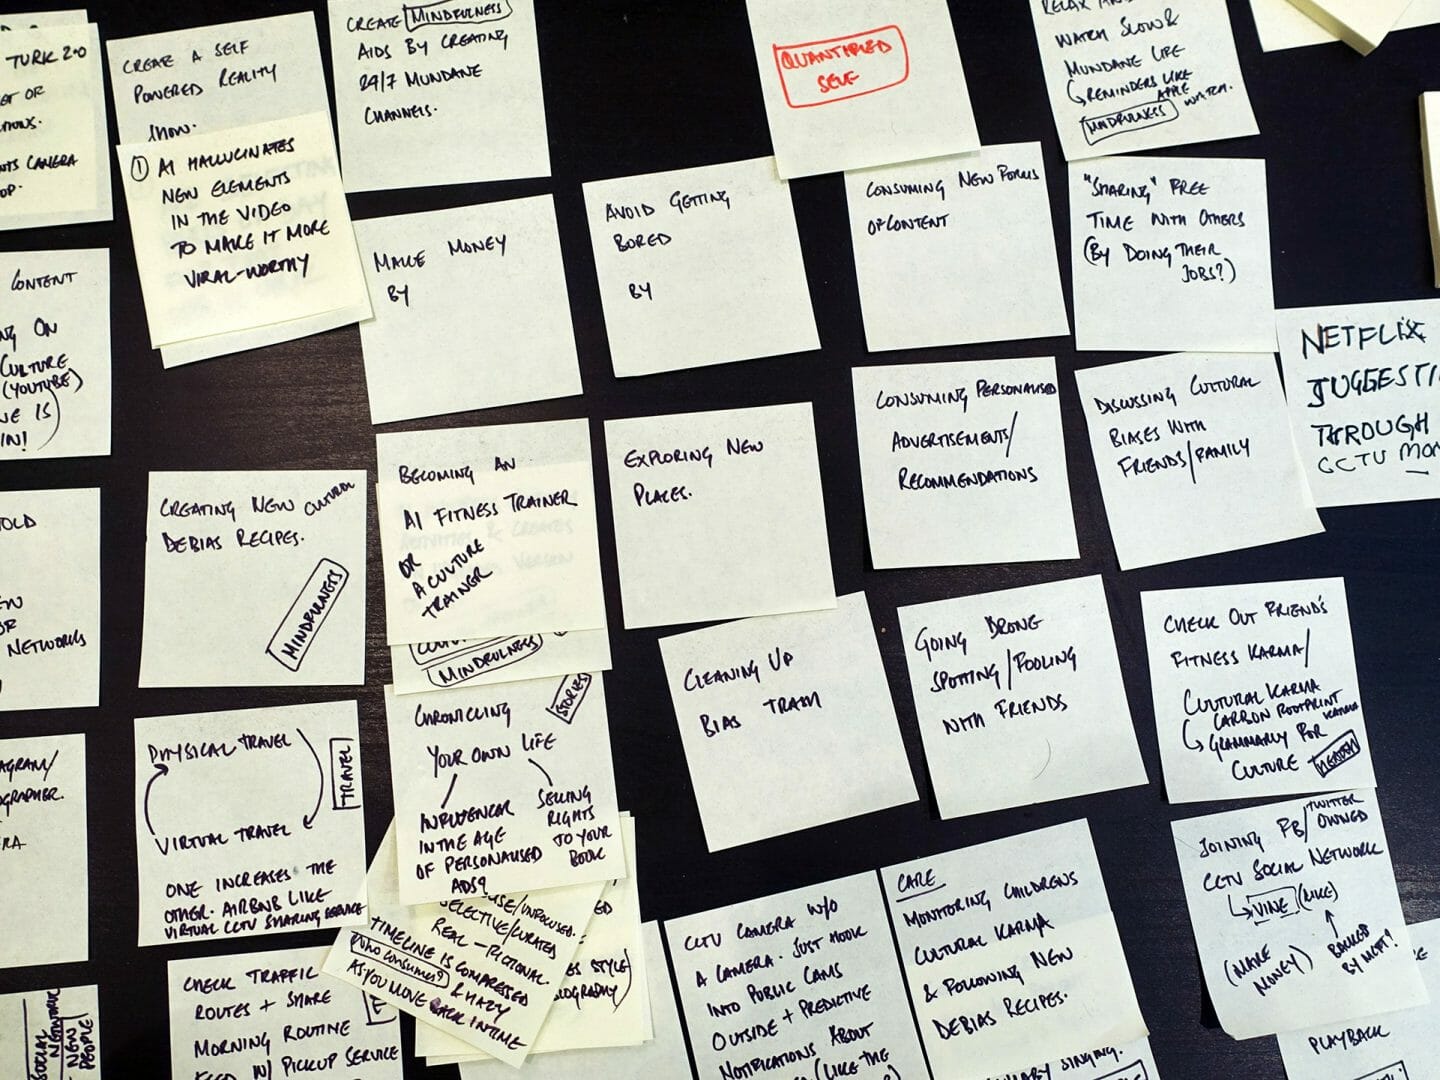 TURK 2.0
CAMERA
CREATE A SELF
POWERED REALITY
SHOW.
① AI HALLUCINATES
NEW ELEMENTS
IN THE VIDEO
TO MAKE IT MORE
VIRAL-WORTHY
CREATE MINDFULNESS
AIDS BY CREATING
24/7 MUNDANE
CHANNELS.
QUANTIFIED
SELF
RELAX AND
WATCH SLOW &
MUNDANE LIFE
REMINDERS LIKE
APPLE
MINDFULNESS WATCH.
MAKE MONEY
BY
AVOID GETTING
BORED
BY
CONSUMING NEW FORMS
OF CONTENT
"SHARING" FREE
TIME WITH OTHERS
(BY DOING THEIR
JOBS?)
CONTENT
ON
CULTURE
(YOUTUBE)
IS
IN!
NETFLIX
THROUGH
CCTV
CREATING NEW CULTURAL
DEBIAS RECIPES.
MINDFULNESS
BECOMING AN
AI FITNESS TRAINER
OR
A CULTURE
TRAINER
MINDFULNESS
EXPLORING NEW
PLACES.
CONSUMING PERSONALISED
ADVERTISEMENTS/
RECOMMENDATIONS
DISCUSSING CULTURAL
BIASES WITH
FRIENDS/FAMILY
NETWORKS
PHYSICAL TRAVEL
TRAVEL
VIRTUAL TRAVEL
ONE INCREASES THE
OTHER. AIRBNB LIKE
VIRTUAL CCTV SHARING SERVICE
CHRONICLING
STORIES
YOUR OWN LIFE
INFLUENCER
IN THE AGE
OF PERSONALISED
ADS?
SELLING
RIGHTS
TO YOUR
BOOK
CLEANING UP
BIAS TRASH
GOING DRONE
SPOTTING/FOOLING
WITH FRIENDS
CHECK OUT FRIEND'S
FITNESS KARMA/
CULTURAL KARMA
CARBON FOOTPRINT
KARMA
GRAMMARLY FOR
CULTURE HEALTH
SELECTIVE/CURATED
REAL-FICTIONAL
TIMELINE IS COMPRESSED
WHO CONSUMES? & HAZY
AS YOU MOVE BACK IN TIME
STYLE
CHECK TRAFFIC
ROUTES + SHARE
MORNING ROUTINE
FEED W/ PICKUP SERVICE
SOCIAL
NETWORK
NEW
PEOPLE!
CCTV CAMERA W/O
A CAMERA. JUST HOOK
INTO PUBLIC CAMS
OUTSIDE + PREDICTIVE
NOTIFICATIONS ABOUT
(LIKE THE
CARE
MONITORING CHILDRENS
CULTURAL KARMA
& FOLLOWING NEW
DEBIAS RECIPES.
SINGING.
JOINING FB/TWITTER
OWNED
CCTV SOCIAL NETWORK
VINE (LIKE)
(MAKE
MONEY)
BACKED
BY MSFT?
PLAYBACK